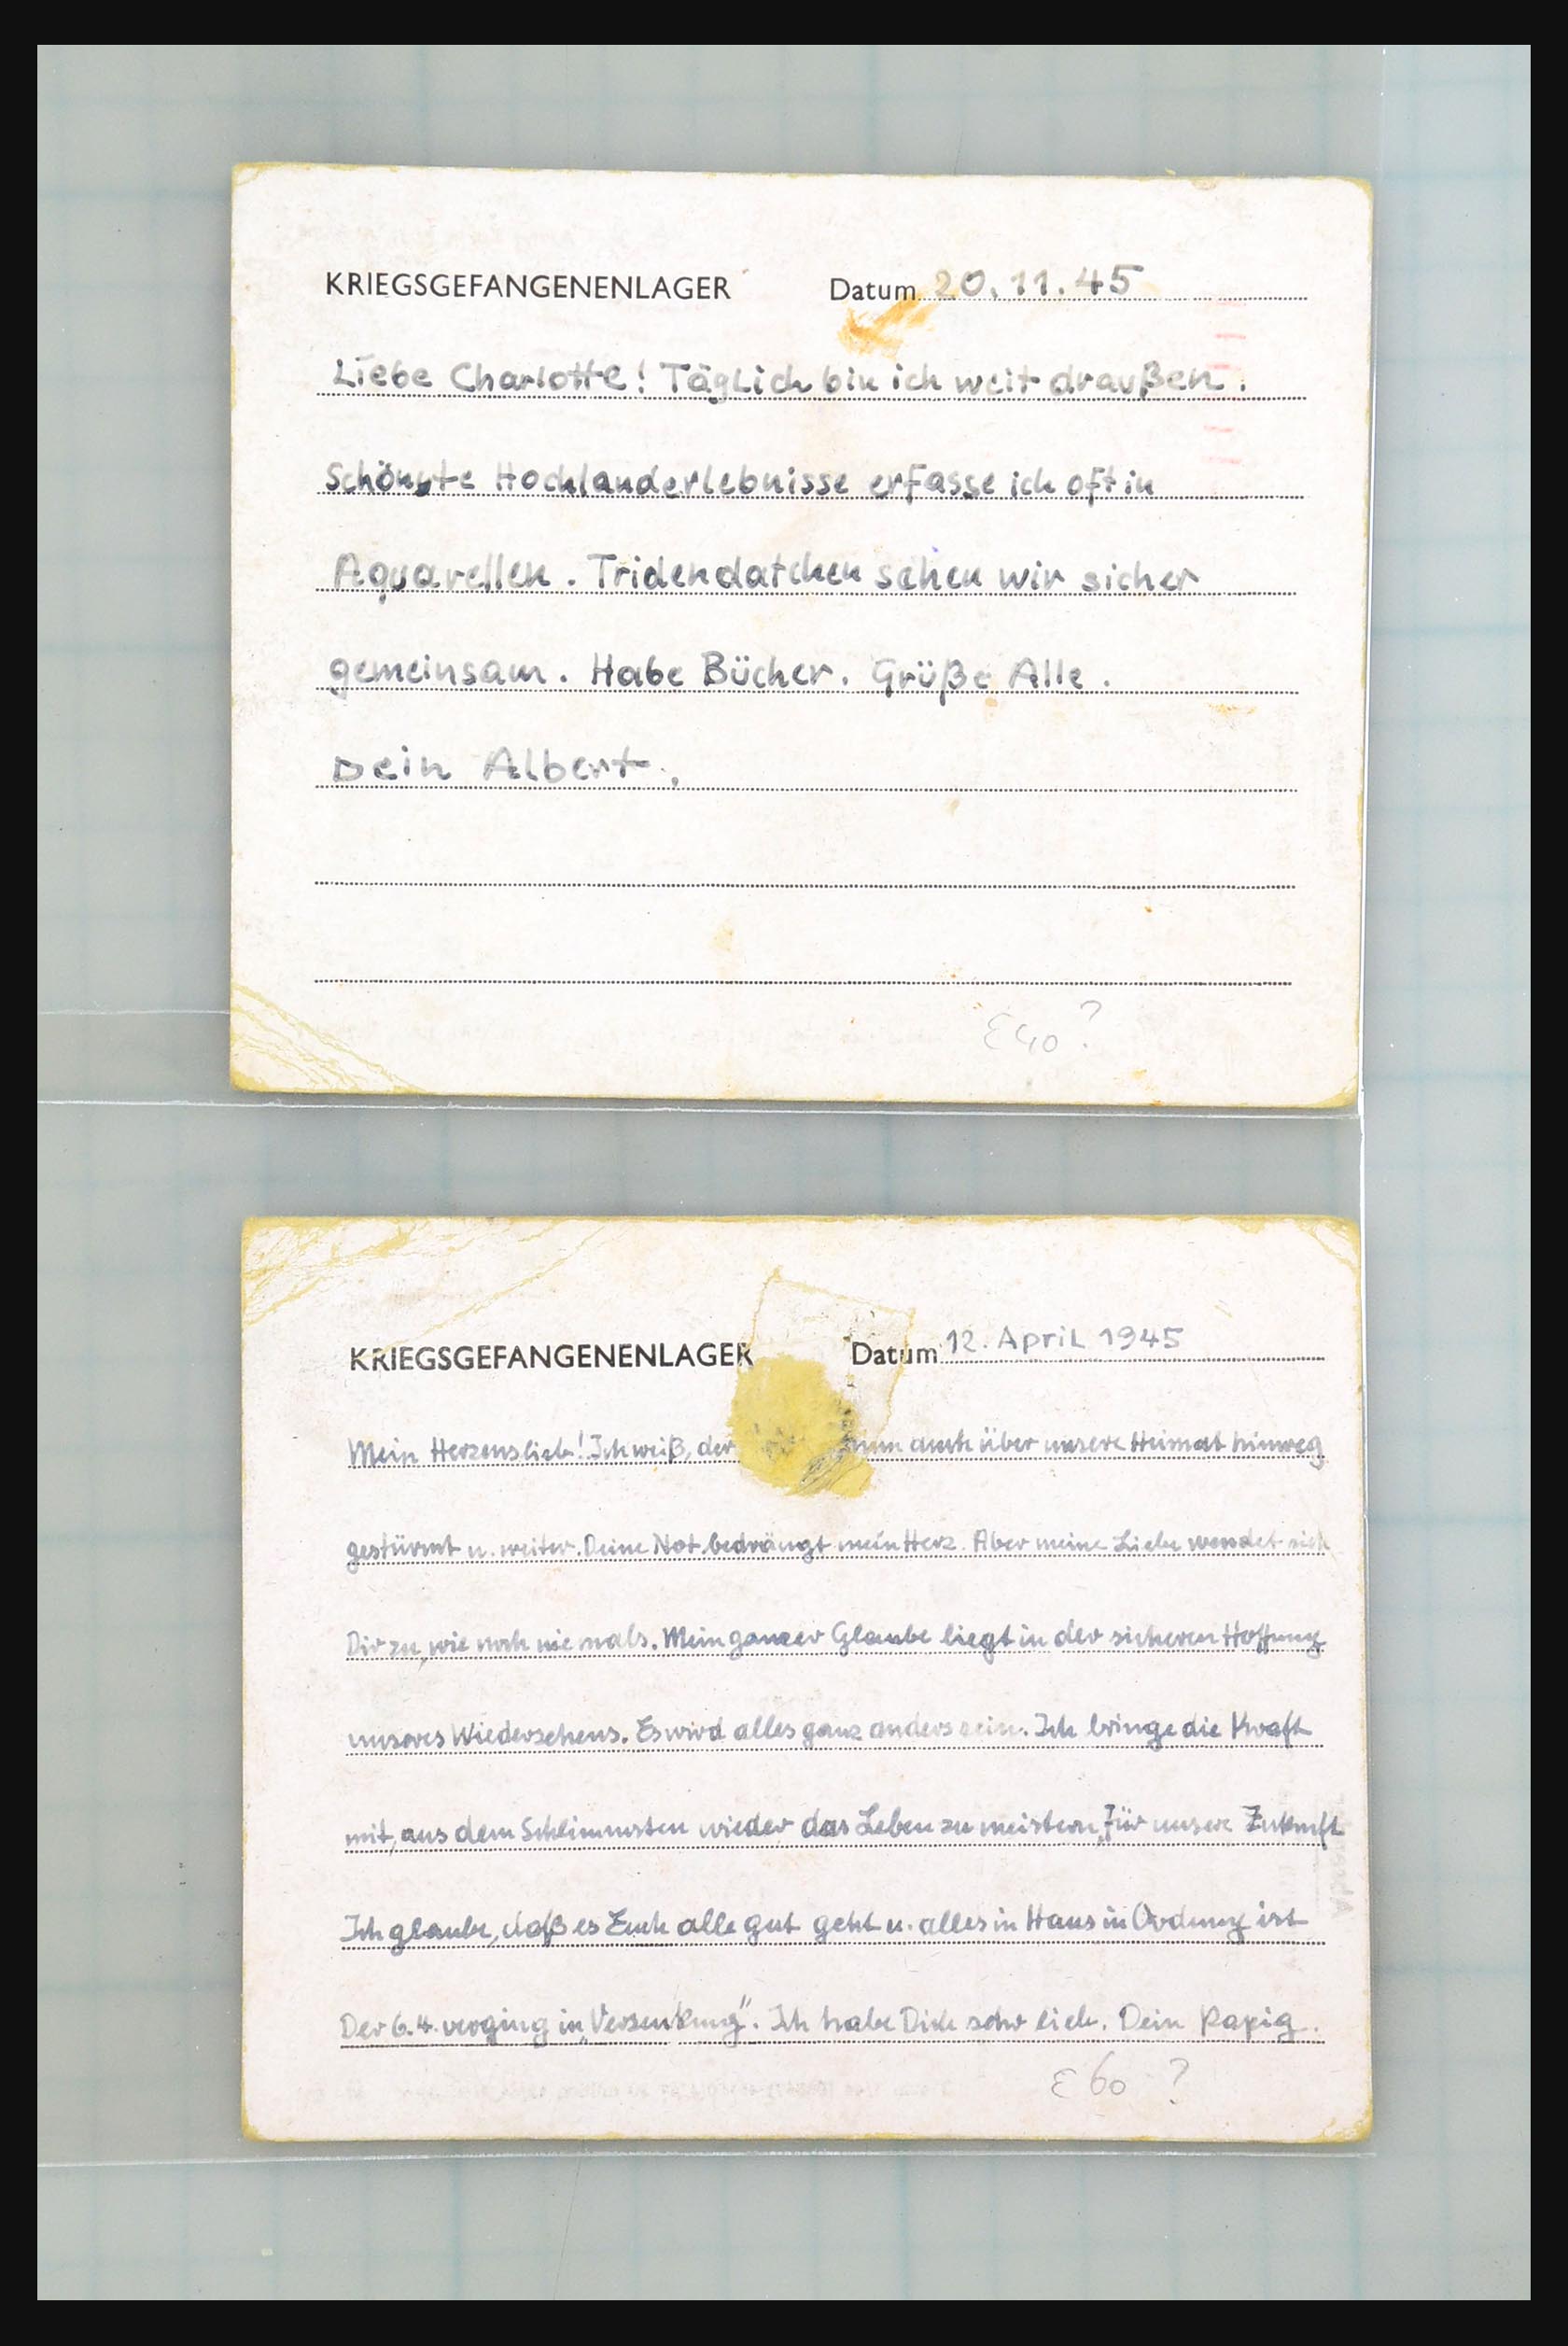 KRIEGSGEFANGENENLAGER Datum 20.11.45
Liebe Charlotte! Täglich bin ich weit draußen.
Schönste Hochlanderlebnisse erfasse ich oft in
Aquarellen. sehen wir sicher
gemeinsam. Habe Bücher. Grüße Alle.
Dein Albert.
£40?
KRIEGSGEFANGENENLAGER Datum 12. April 1945
Mein Herzenslieb! Ich weiß, der nun auch über unsere Heimat hinweg
gestürmt u. weiter. Deine Not bedrängt mein Herz. Aber meine Liebe wendet sich
Dir zu, wie noch niemals. Mein ganzer Glaube liegt in der sicheren Hoffnung
unseres Wiedersehens. Es wird alles ganz anders sein. Ich bringe die Kraft
mit, aus dem Schlimmsten wieder das Leben zu meistern, für unsere Zukunft
Ich glaube, daß es Euch alle gut geht u. alles in Haus in Ordnung ist
Der 6.4. verging in „Versenkung". Ich habe Dich sehr lieb. Dein Papig.
£60 ?